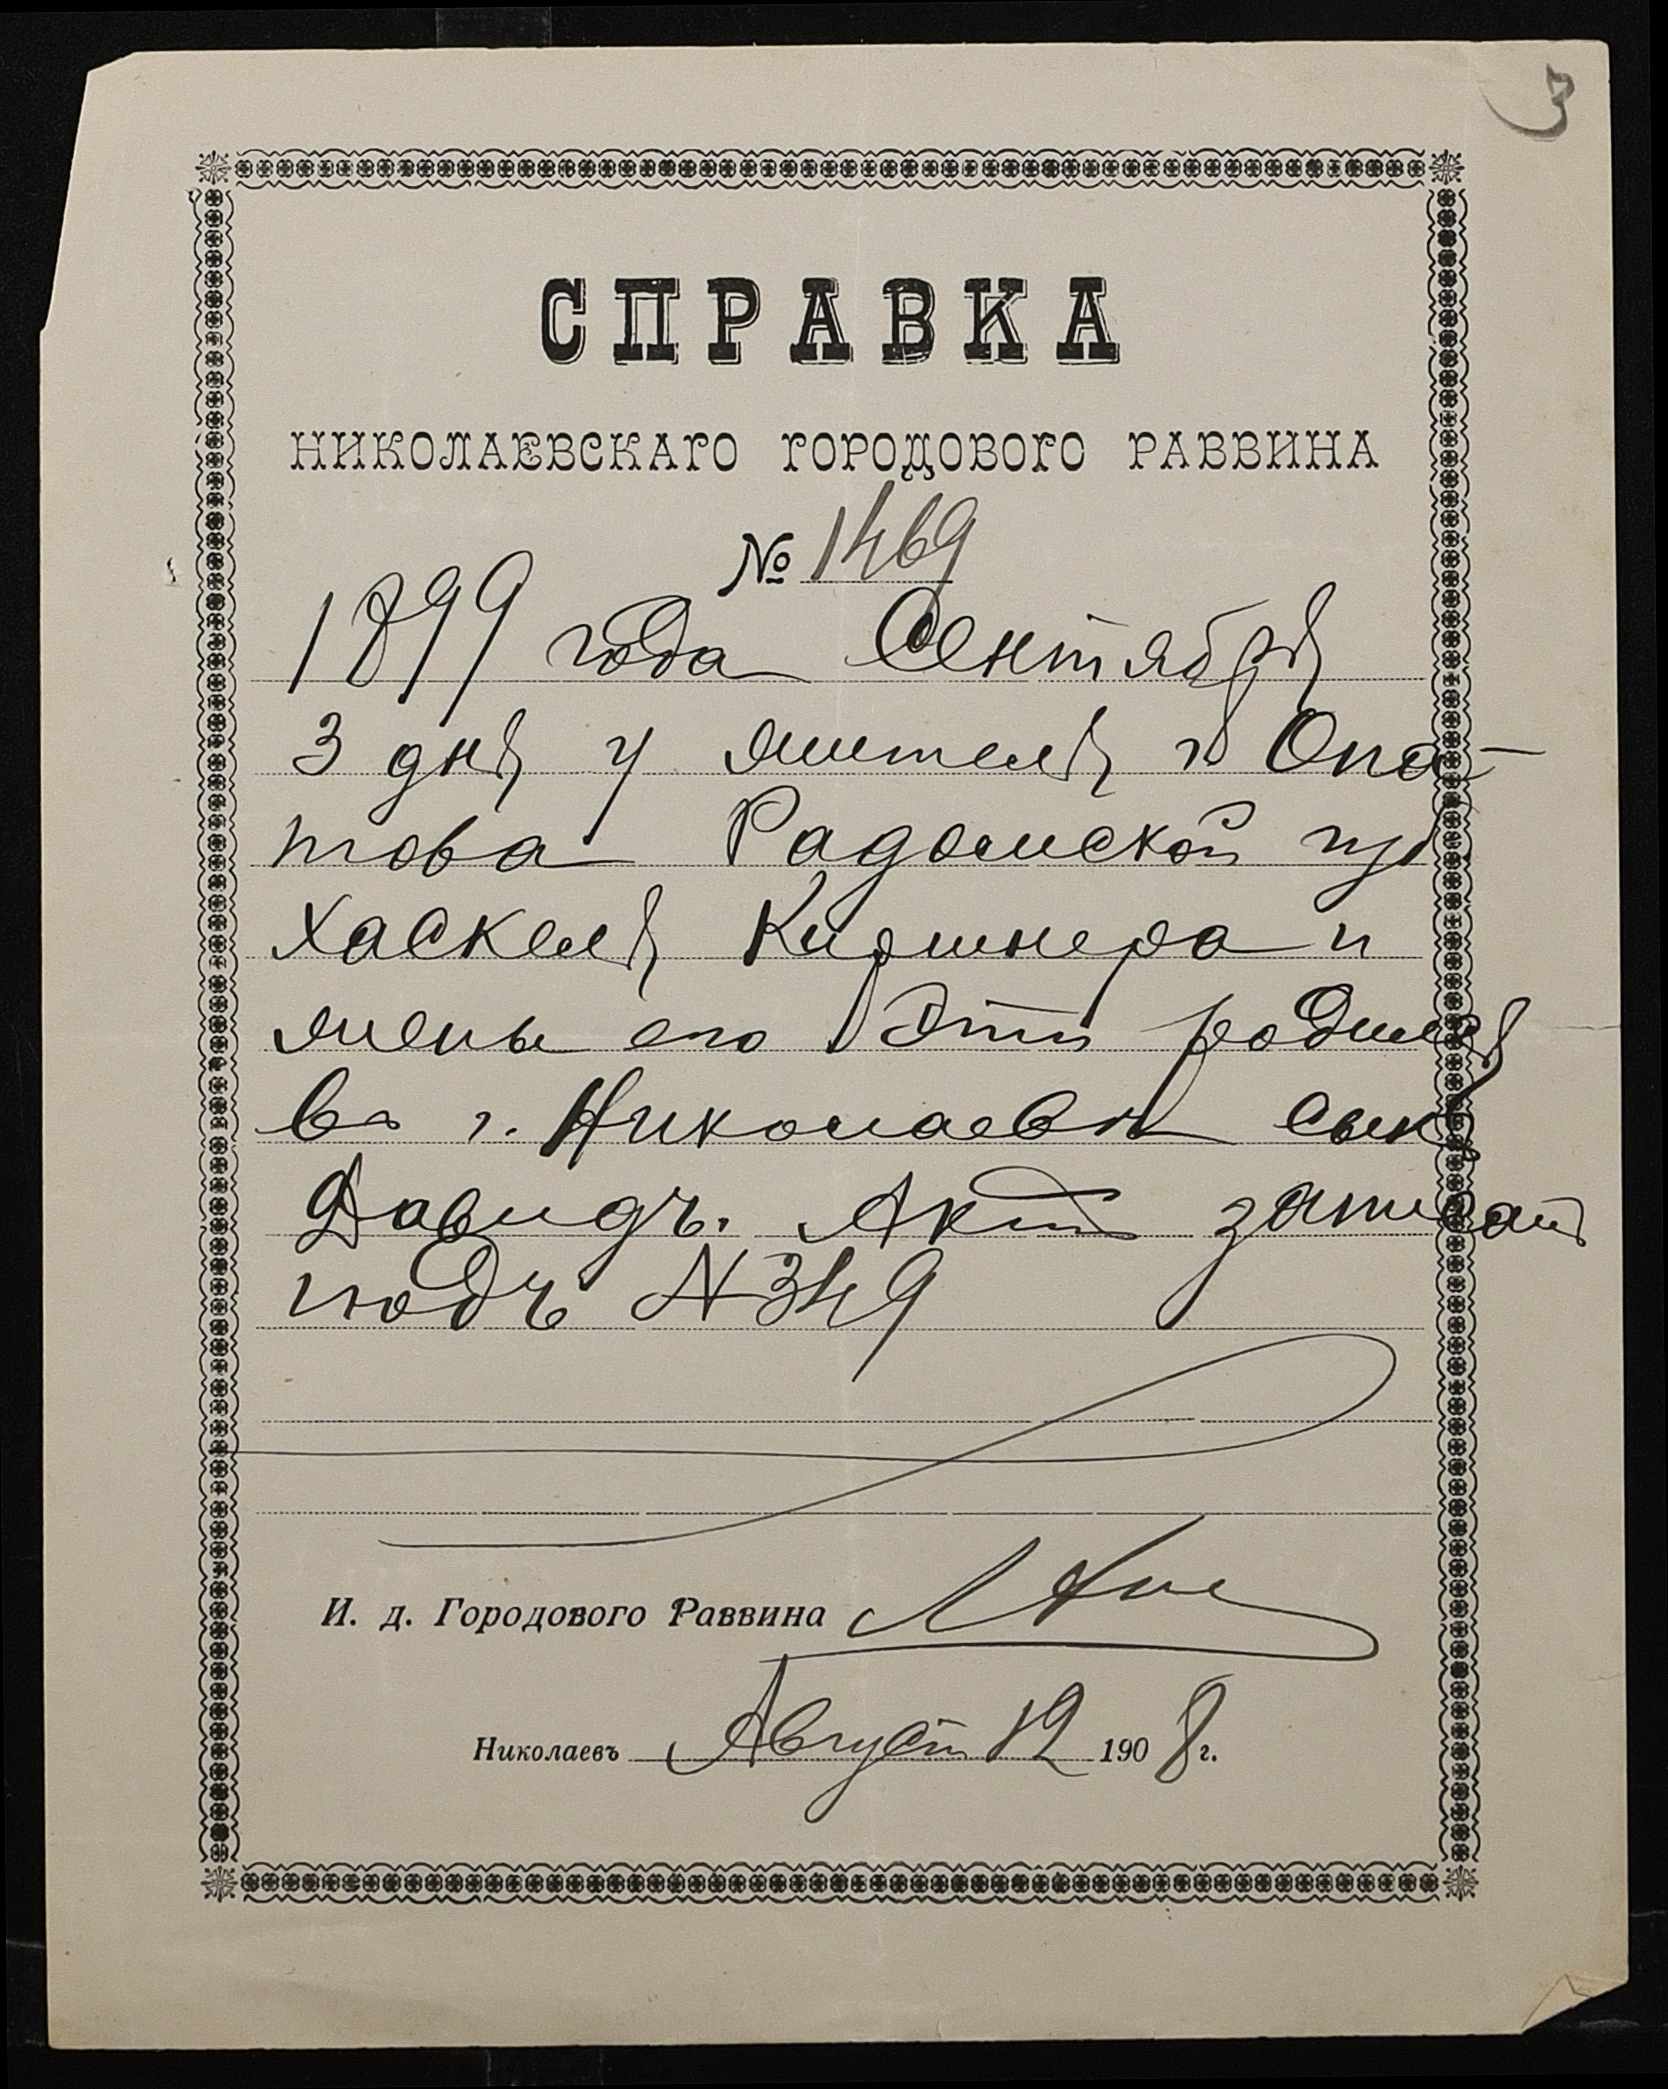 3
СПРАВКА
НИКОЛАЕВСКАГО ГОРОДОВОГО РАВВИНА
№ 1469
1899 года Сентября
3 дня у жителя г. Опа-
това Радомской губ
Хаскеля Киршнера и
жены его Эти родился
въ г. Николаевѣ сынъ
Давидъ. Актъ записанъ
подъ № 349
И. д. Городового Раввина
Николаевъ Августа 12 1908 г.